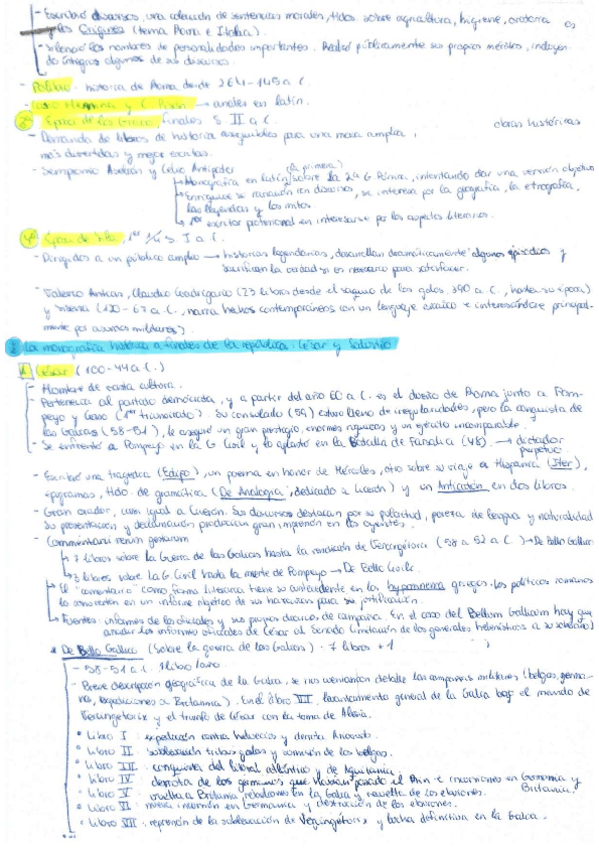 - Escribió discursos, una colección de sentencias morales, tdos. sobre agricultura, higiene, oratoria
y los Orígenes (tema Roma e Italia).
- Silenció los nombres de personalidades importantes. Realzó públicamente sus propios méritos, incluyen-
do íntegros algunos de sus discursos.
- Polibio: historia de Roma desde 264-145 a.C.
- Casio Hemina y C. Pisón → anales en latín.
3ª Época de los Graco, finales s. II a.C.
obras históricas
- Demanda de libros de historia asequibles para una masa amplia,
más divertidas y mejor escritas.
- Sempronio Aselión y Celio Antípater
(la primera)
↳ Monografía en latín sobre la 2ª G. Púnica, intentando dar una versión objetiva
↳ Enriquece su narración con discursos, se interesa por la geografía, la etnografía,
las leyendas y los mitos.
↳ 1er escritor profesional en interesarse por los aspectos literarios.
4ª Época de Sila, 1er 1/4 s. I a.C.
- Dirigidos a un público amplio → historias legendarias, desarrollan dramáticamente algunos episodios y
sacrifican la verdad si es necesario para satisfacer.
- Valerio Antias, Claudio Cuadrigario (23 libros desde el saqueo de los galos, 390 a.C., hasta su época)
y Sisenna (120-67 a.C., narra hechos contemporáneos con un lenguaje arcaico e interesándose principal-
mente por asuntos militares).
2. La monografía histórica a finales de la república. César y Salustio
A. César (100-44 a.C.)
- Hombre de vasta cultura.
- Pertenecía al partido demócrata, y a partir del año 60 a.C. es el dueño de Roma junto a Pom-
peyo y Craso (1er triunvirato). Su consulado (59) estuvo lleno de irregularidades, pero la conquista de
las Galias (58-51), le aseguró un gran prestigio, enormes riquezas y un ejército incomparable.
- Se enfrentó a Pompeyo en la G. Civil y lo aplastó en la Batalla de Farsalia (48). → dictador
perpetuo
- Escribió una tragedia (Edipo), un poema en honor de Hércules, otro sobre su viaje a Hispania (Iter),
epigramas, tdo. de gramática (De Analogia, dedicado a Cicerón) y un Anticatón en dos libros.
- Gran orador, casi igual a Cicerón. Sus discursos destacan por su pulcritud, pureza de lengua y naturalidad
Su presentación y declamación producían gran impresión en los oyentes.
- Commentarii rerum gestarum
↳ 7 libros sobre la Guerra de las Galias hasta la rendición de Vercingétorix (58 a 52 a.C.) → De Bello Gallico
↳ 3 libros sobre la G. Civil hasta la muerte de Pompeyo → De Bello Civile.
↳ El "comentario" como forma literaria tiene su antecedente en los hypomnema griegos. Los políticos romanos
lo convierten en un informe objetivo de sus hazañas para su justificación.
↳ Fuentes: informes de los oficiales y sus propios diarios de campaña. En el caso del Bellum Gallicum hay que
añadir los informes oficiales de César al Senado (imitación de los generales helenísticos a su soberano)
* De Bello Gallico (Sobre la guerra de las Galias). 7 libros + 1
- 58-51 a.C. 1 libro / año
- Breve descripción geográfica de la Galia, se nos cuentan con detalle las campañas militares (belgas, germa-
nos, expediciones a Britannia). En el libro VII, levantamiento general de la Galia bajo el mando de
Vercingetorix y el triunfo de César con la toma de Alesia.
• Libro I : expedición contra helvecios y derrota Ariovisto.
• Libro II : sublevación tribus galas y sumisión de los belgas.
• Libro III : conquista del litoral atlántico y de Aquitania.
• Libro IV : derrota de los germanos que habían pasado el Rhin e incursiones en Germania y
Britannia.
• Libro V : vuelta a Britania, rebeliones en la Galia y revuelta de los eburones.
• Libro VI : nueva incursión en Germania y destrucción de los eburones.
• Libro VII : represión de la sublevación de Vercingétorix, y lucha definitiva en la Galia.